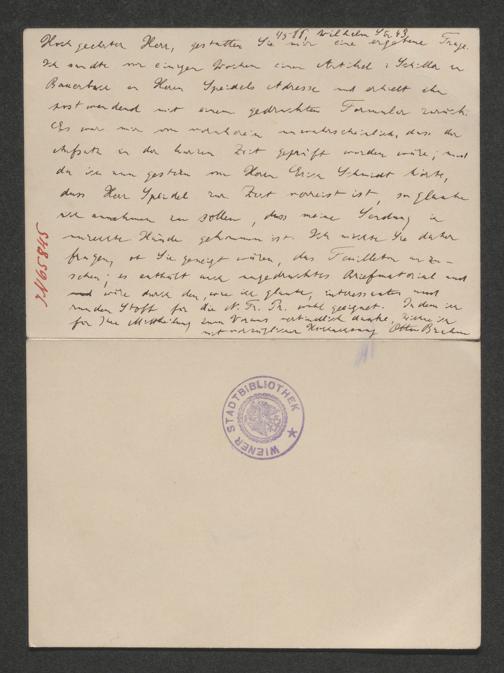 4/5 88, Wilhelm Str. 49.
Hochgeehrter Herr, gestatten Sie mir eine ergebene Frage.
Ich sandte vor einigen Wochen einen Artikel: Schiller in
Bauerbach an Herrn Speidels Adresse und erhielt ihn
postwendend mit einem gedruckten Formular zurück.
Es war mir von vornherein unwahrscheinlich, dass der
Aufsatz in der kurzen Zeit geprüft worden wäre; und
da ich nun gestern von Herrn Erich Schmidt hörte,
dass Herr Speidel zur Zeit verreist ist, so glaube
ich annehmen zu sollen, dass meine Sendung in
unrechte Hände gekommen ist. Ich möchte Sie daher
fragen, ob Sie geneigt wären, das Feuilleton anzu-
sehen; es enthält auch ungedrucktes Briefmaterial und
und wäre durch den, wie ich glaube, interessanten und
runden Stoff für die N. Fr. Pr. wohl geeignet. Indem ich
für Ihre Mittheilung zum Voraus verbindlich danke, zeichne ich
mit vorzüglicher Hochachtung Otto Brahm
IN 65845
WIENER STADTBIBLIOTHEK